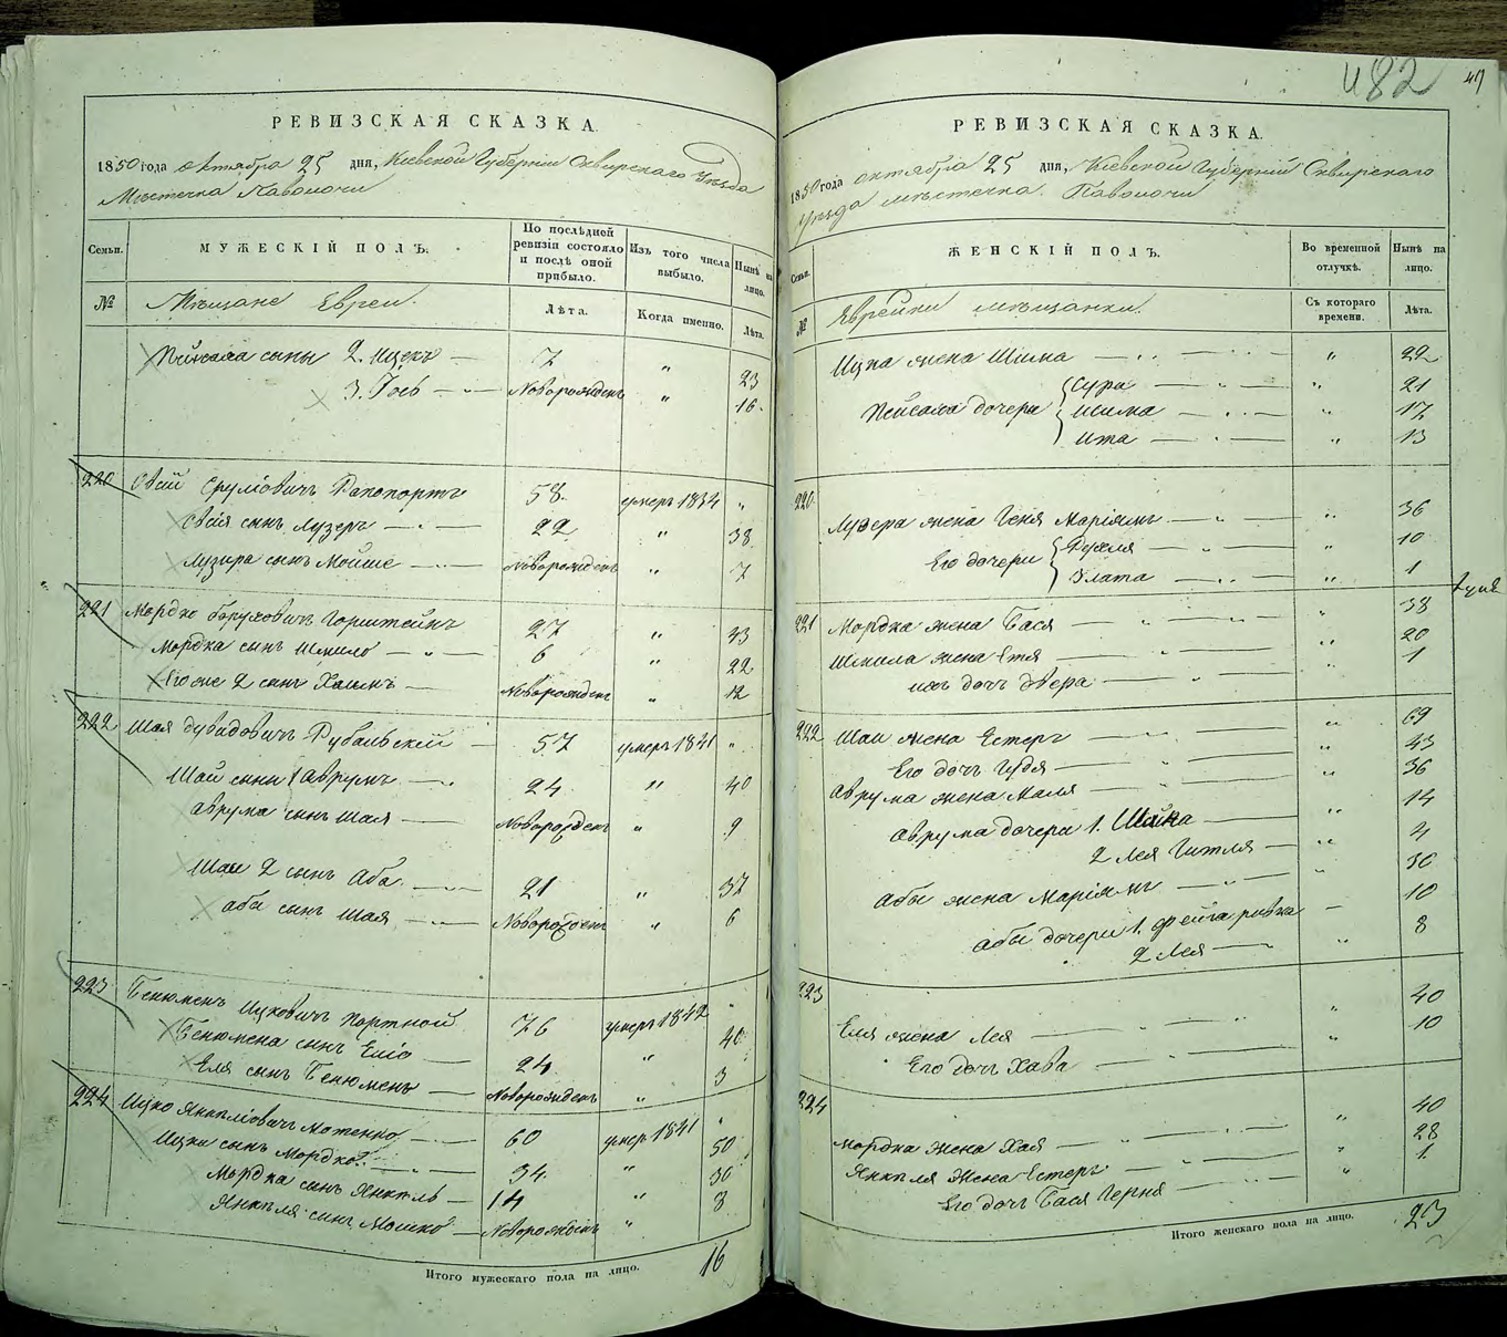 482
47
РЕВИЗСКАЯ СКАЗКА.
1850 года октября 25 дня, Кіевской Губерніи Сквирскаго Уѣзда
Мѣстечка Паволочи
Семьи. МУЖЕСКІЙ ПОЛЪ. По послѣдней ревизіи состояло и послѣ оной прибыло. Изъ того числа выбыло. Нынѣ на лицо.
№ Мѣщане Евреи. Лѣта. Когда именно. Лѣта.
сыны 2. Ицекъ — 7 " 23
3. — Новорожденъ " 16.
220 Овсій Сруліовичъ Рапопортъ 58. умеръ 1834 "
Овсія сынъ Лузеръ — 22 " 38
Лузира сынъ Мойше — Новорожденъ " 7
221 Мордко Боруховичъ Горштейнъ 27 " 43
Мордка сынъ Шмило — 6 " 22
Его же 2 сынъ Хаимъ — Новорожденъ " 12
222 Шая Дувидовичъ Рубальскій — 57 умеръ 1841 "
Шаи сыны 1 Аврумъ — 24 " 40
Аврума сынъ Шая — Новорожденъ " 9
Шаи 2 сынъ Аба — 21 " 37
Абы сынъ Шая — Новорожденъ " 6
223 Бенюменъ Ицковичъ Портной 76 умеръ 1842 "
Бенюмена сынъ Еліо — 24 " 40
Еля сынъ Бенюменъ — Новорожденъ " 3
224 Ицко Янкеліовичъ Мотенко — 60 умеръ 1841 "
Ицка сынъ Мордко — 34 " 50
Мордка сынъ Янкель — 14 " 30
Янкеля сынъ Мошко — Новорожденъ " 8
Итого мужескаго пола на лицо. 16
РЕВИЗСКАЯ СКАЗКА.
1850 года октября 25 дня, Кіевской Губерніи Сквирскаго
Уѣзда мѣстечка Паволочи
Семьи. ЖЕНСКІЙ ПОЛЪ. Во временной отлучкѣ. Нынѣ на лицо.
№ Еврейки мѣщанки. Съ котораго времени. Лѣта.
Ицка жена Шима — " 22
Пейсаха дочери Сура — " 21
— " 17
Ита — " 13
220. Лузера жена Геня Маріямъ — " 36
Его дочери Рухля — " 10
Злата — " 1
221 Мордка жена Бася — " 38
Шмила жена Етя — " 20
ихъ дочь Двера — " 1
222 Шаи жена Естеръ — " 69
Его дочь Гудя — " 43
Аврума жена Маля — " 36
Аврума дочери 1. Шейна — " 14
2 Лея Гитля — " 4
Абы жена Маріямъ — " 30
Абы дочери 1. Фейга Ривка — 10
2 Лея — " 8
223 Еля жена Лея — " 40
Его дочь Хава — " 10
224 Мордка жена Хая — " 40
Янкеля жена Естеръ — " 28
Его дочь Бася Черня — " 1
Итого женскаго пола на лицо. 23